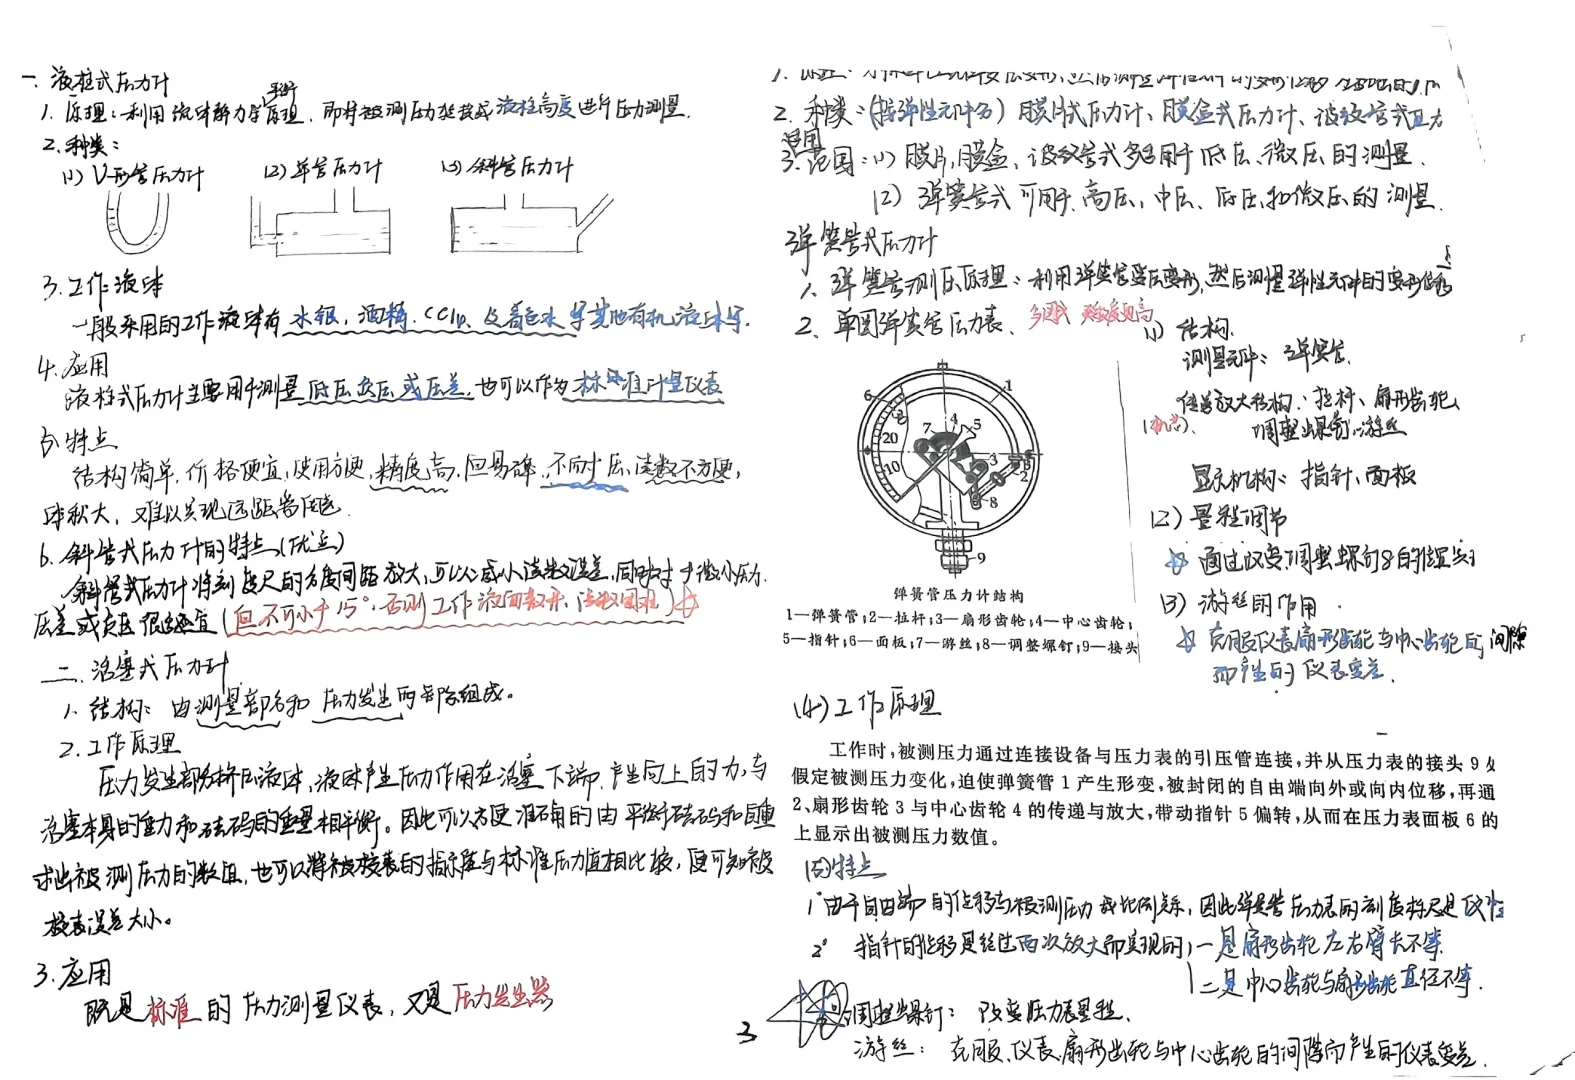 一、液柱式压力计
1. 原理：利用流体静力学平衡原理，即将被测压力转换成液柱高度进行压力测量.
2. 种类：
(1) U形管压力计 (2) 单管压力计 (3) 斜管压力计
3. 工作液体
一般采用的工作液体有水银，酒精，CCl4，及着色水等其他有机液体等.
4. 应用
液柱式压力计主要用于测量低压负压或压差，也可以作为标准计量仪表
5. 特点
结构简单，价格便宜，使用方便，精度高，但易碎，不耐压，读数不方便，
体积大，难以实现远距离传送.
6. 斜管式压力计的特点(优点)
斜管式压力计将刻度尺的刻度间距放大，可以减小读数误差，同时对于微小压力.
压差或负压很适宜(但不可小于15°，否则工作液面散开，读数困难)
二、活塞式压力计
1. 结构：由测量部分和压力发生两部分组成。
2. 工作原理
压力发生部分挤压液体，液体产生压力作用在活塞下端，产生向上的力，与
活塞本身的重力和砝码的重量相平衡。因此可以方便准确的由平衡砝码和自重
求出被测压力的数值，也可以将被校表的指示值与标准压力值相比较，便可知被
校表误差大小。
3. 应用
既是标准的压力测量仪表，又是压力发生器
2. 种类：(按弹性元件分) 膜片式压力计、膜盒式压力计、波纹管式压力
3. 范围：(1) 膜片，膜盒、波纹管式多适用于低压、微压的测量.
(2) 弹簧管式可用于高压，中压、低压和微压的测量.
弹簧管式压力计
1. 弹簧管测压原理：利用弹簧管受压变形，然后测量弹性元件的变形位移
2. 单圈弹簧管压力表. 多圈 灵敏度更高
(1) 结构.
测量元件：弹簧管.
传动放大机构：拉杆、扇形齿轮、
(机芯) 调整螺钉、游丝
显示机构：指针、面板
(2) 量程调节
通过改变调整螺钉8的位置实
(3) 游丝的作用.
克服仪表扇形齿轮与中心齿轮间间隙
而产生的仪表变差.
6 1
20 7 4 5
10 3 3 2
8
9
弹簧管压力计结构
1—弹簧管；2—拉杆；3—扇形齿轮；4—中心齿轮；
5—指针；6—面板；7—游丝；8—调整螺钉；9—接头
(4) 工作原理
工作时，被测压力通过连接设备与压力表的引压管连接，并从压力表的接头 9
假定被测压力变化，迫使弹簧管 1 产生形变，被封闭的自由端向外或向内位移，再通
2、扇形齿轮 3 与中心齿轮 4 的传递与放大，带动指针 5 偏转，从而在压力表面板 6 的
上显示出被测压力数值。
(5) 特点
1° 由于自由端的位移与被测压力成比例关系，因此弹簧管压力表的刻度标尺是
2° 指针的位移是经过两次放大而实现的，一是扇形齿轮左右臂长不等.
二是中心齿轮与扇形齿轮直径不等.
调整螺钉：改变压力表量程.
游丝：克服仪表扇形齿轮与中心齿轮的间隙而产生的仪表变差.
3